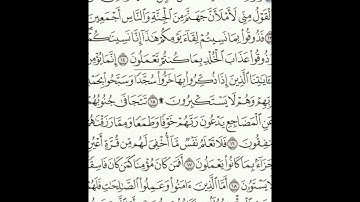 ٱلْقَوْلُ مِنِّى لَأَمْلَأَنَّ جَهَنَّمَ مِنَ ٱلْجِنَّةِ وَٱلنَّاسِ أَجْمَعِينَ
١٣ فَذُوقُوا۟ بِمَا نَسِيتُمْ لِقَآءَ يَوْمِكُمْ هَٰذَآ إِنَّا نَسِينَٰكُمْ
وَذُوقُوا۟ عَذَابَ ٱلْخُلْدِ بِمَا كُنتُمْ تَعْمَلُونَ ١٤ إِنَّمَا يُؤْمِنُ
بِـَٔايَٰتِنَا ٱلَّذِينَ إِذَا ذُكِّرُوا۟ بِهَا خَرُّوا۟ سُجَّدًا وَسَبَّحُوا۟ بِحَمْدِ
رَبِّهِمْ وَهُمْ لَا يَسْتَكْبِرُونَ ۩ ١٥ تَتَجَافَىٰ جُنُوبُهُمْ
عَنِ ٱلْمَضَاجِعِ يَدْعُونَ رَبَّهُمْ خَوْفًا وَطَمَعًا وَمِمَّا رَزَقْنَٰهُمْ
يُنفِقُونَ ١٦ فَلَا تَعْلَمُ نَفْسٌ مَّآ أُخْفِىَ لَهُم مِّن قُرَّةِ أَعْيُنٍ
جَزَآءًۢ بِمَا كَانُوا۟ يَعْمَلُونَ ١٧ أَفَمَن كَانَ مُؤْمِنًا كَمَن كَانَ فَاسِقًا
لَّا يَسْتَوُۥنَ ١٨ أَمَّا ٱلَّذِينَ ءَامَنُوا۟ وَعَمِلُوا۟ ٱلصَّٰلِحَٰتِ فَلَهُمْ